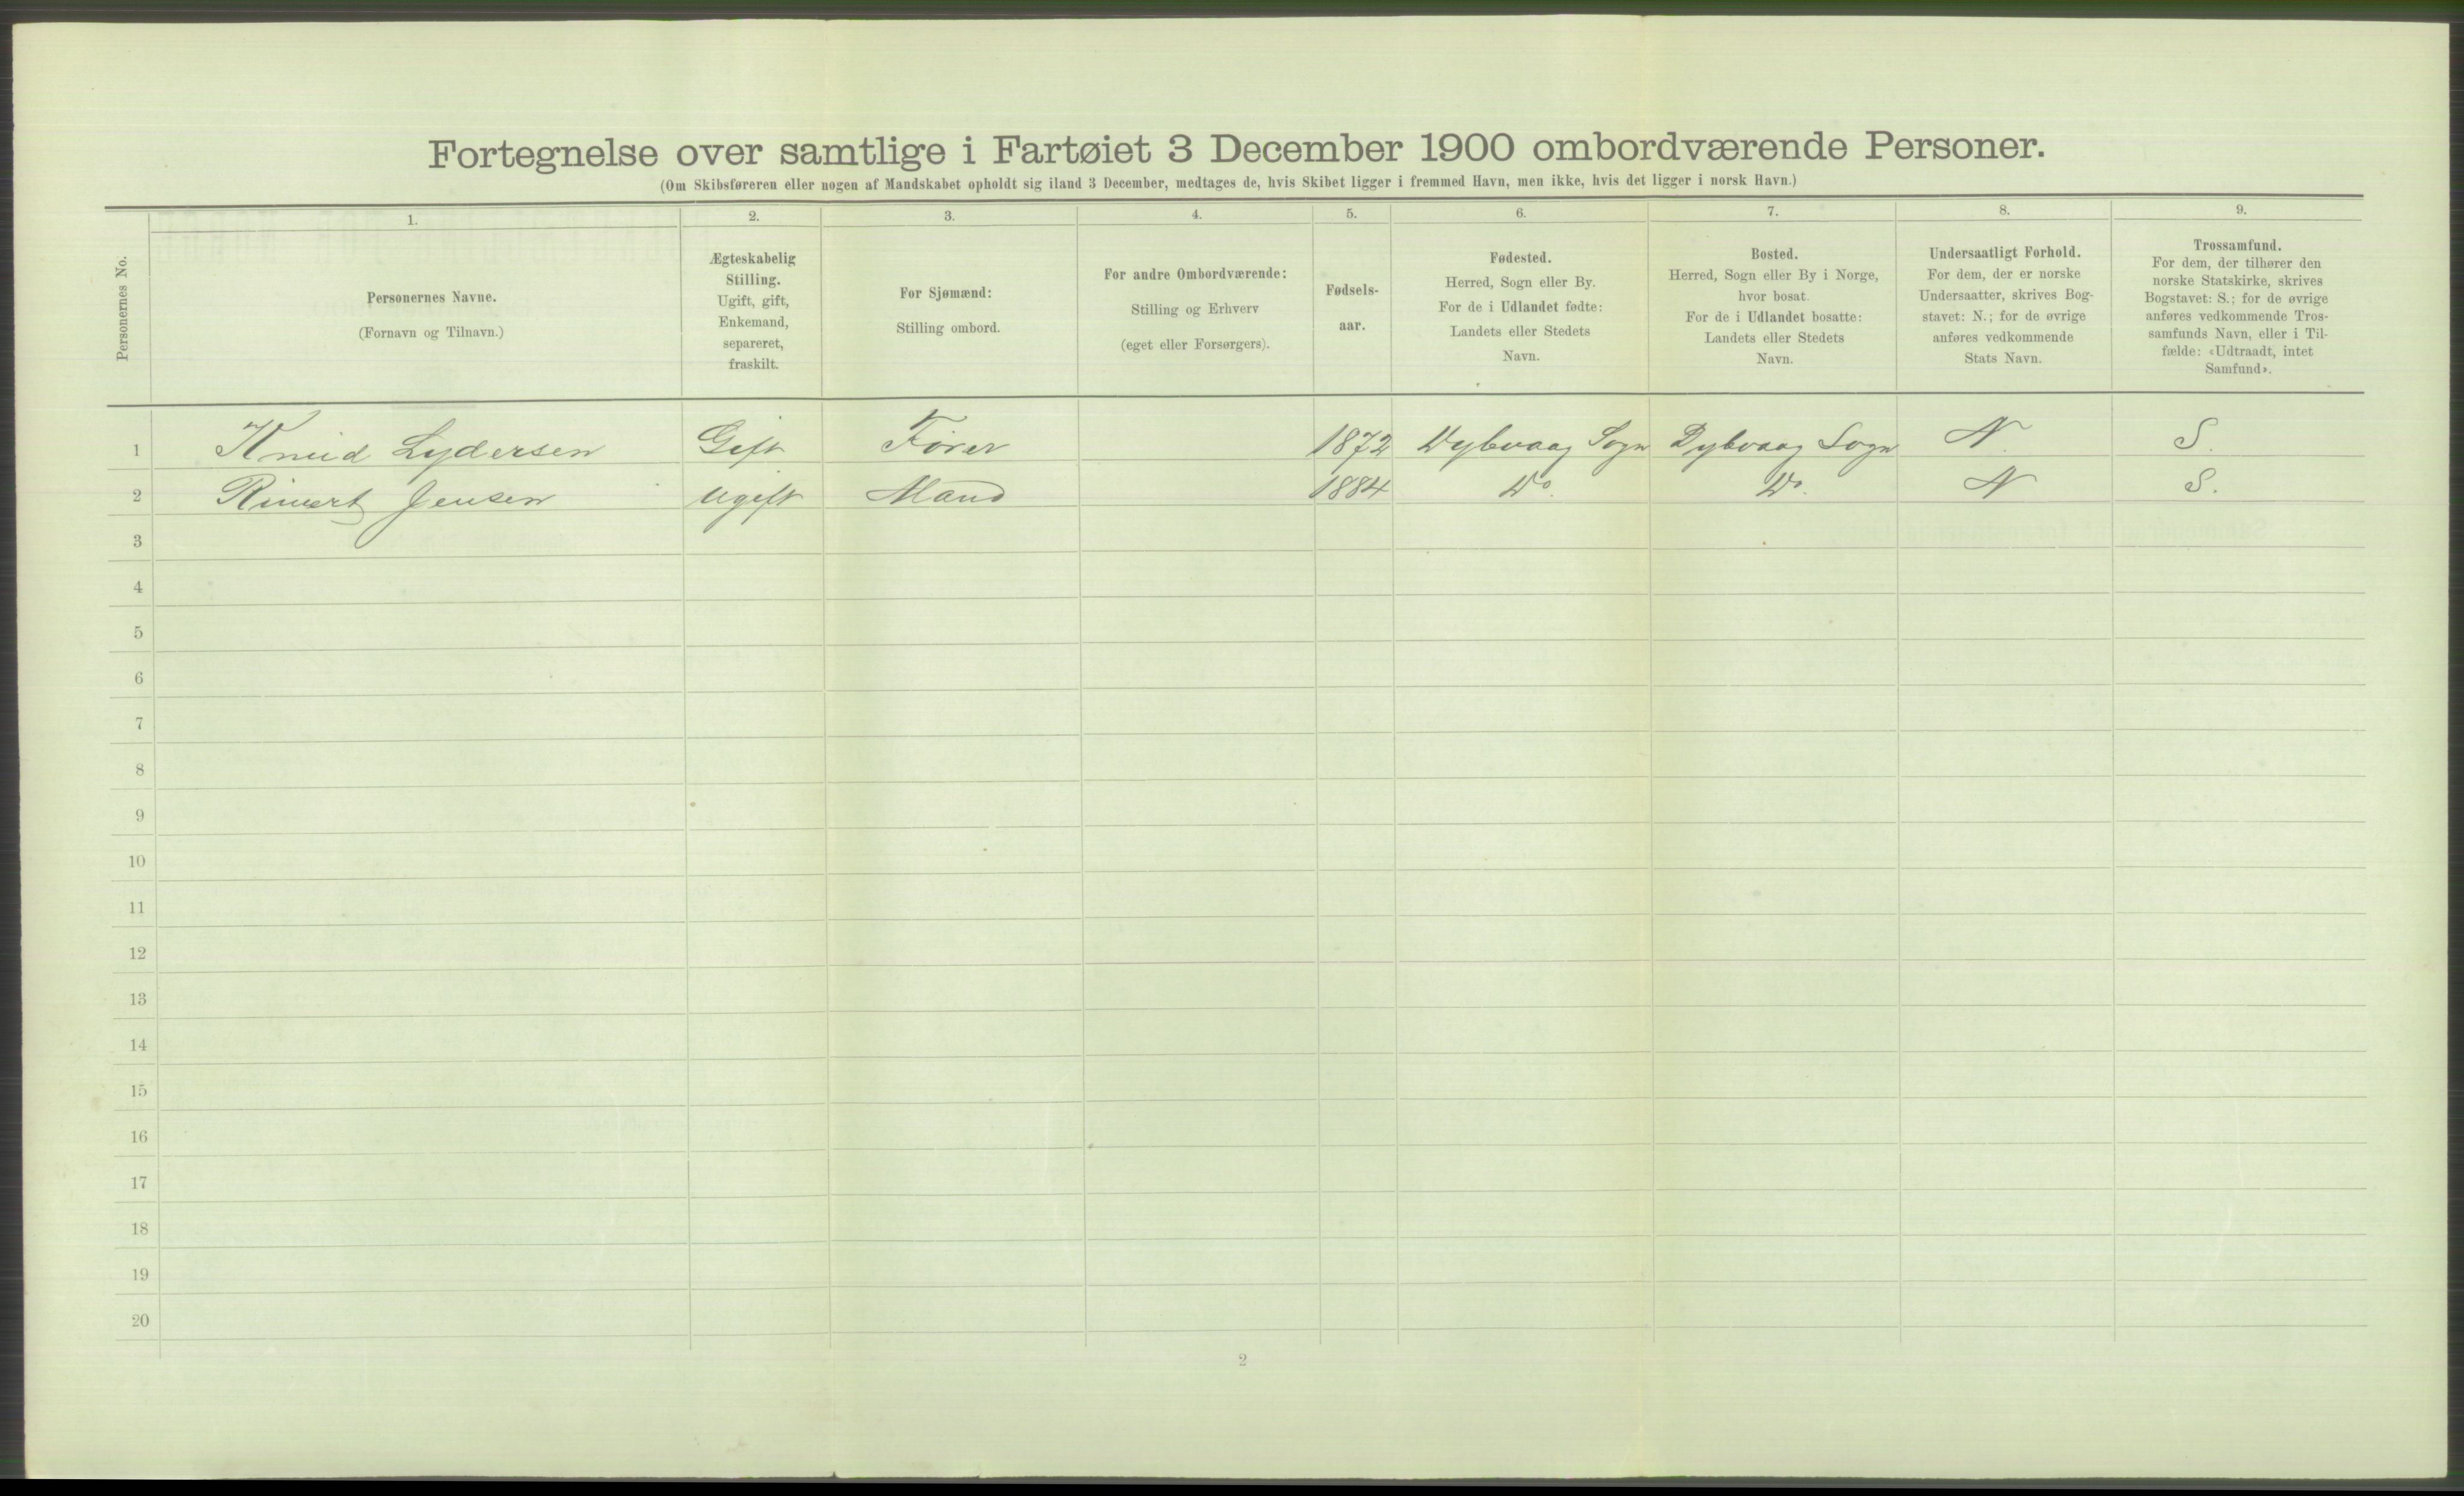 Fortegnelse over samtlige i Fartøiet 3 December 1900 ombordværende Personer.
(Om Skibsføreren eller nogen af Mandskabet opholdt sig iland 3 December, medtages de, hvis Skibet ligger i fremmed Havn, men ikke, hvis det ligger i norsk Havn.)
Personernes No.
1. 2. 3. 4. 5. 6. 7. 8. 9.
Personernes Navne.
(Fornavn og Tilnavn.)
Ægteskabelig
Stilling.
Ugift, gift,
Enkemand,
separeret,
fraskilt.
For Sjømænd:
Stilling ombord.
For andre Ombordværende:
Stilling og Erhverv
(eget eller Forsørgers).
Fødsels-
aar.
Fødested.
Herred, Sogn eller By.
For de i Udlandet fødte:
Landets eller Stedets
Navn.
Bosted.
Herred, Sogn eller By i Norge,
hvor bosat.
For de i Udlandet bosatte:
Landets eller Stedets
Navn.
Undersaatligt Forhold.
For dem, der er norske
Undersaatter, skrives Bog-
stavet: N.; for de øvrige
anføres vedkommende
Stats Navn.
Trossamfund.
For dem, der tilhører den
norske Statskirke, skrives
Bogstavet: S.; for de øvrige
anføres vedkommende Tros-
samfunds Navn, eller i Til-
fælde: «Udtraadt, intet
Samfund».
1 Knud Lydersen Gift Fører 1872 Dybvaag Sogn Dybvaag Sogn N. S.
2 Jensen Ugift Mand 1884 Do. Do. N S.
3
4
5
6
7
8
9
10
11
12
13
14
15
16
17
18
19
20
2